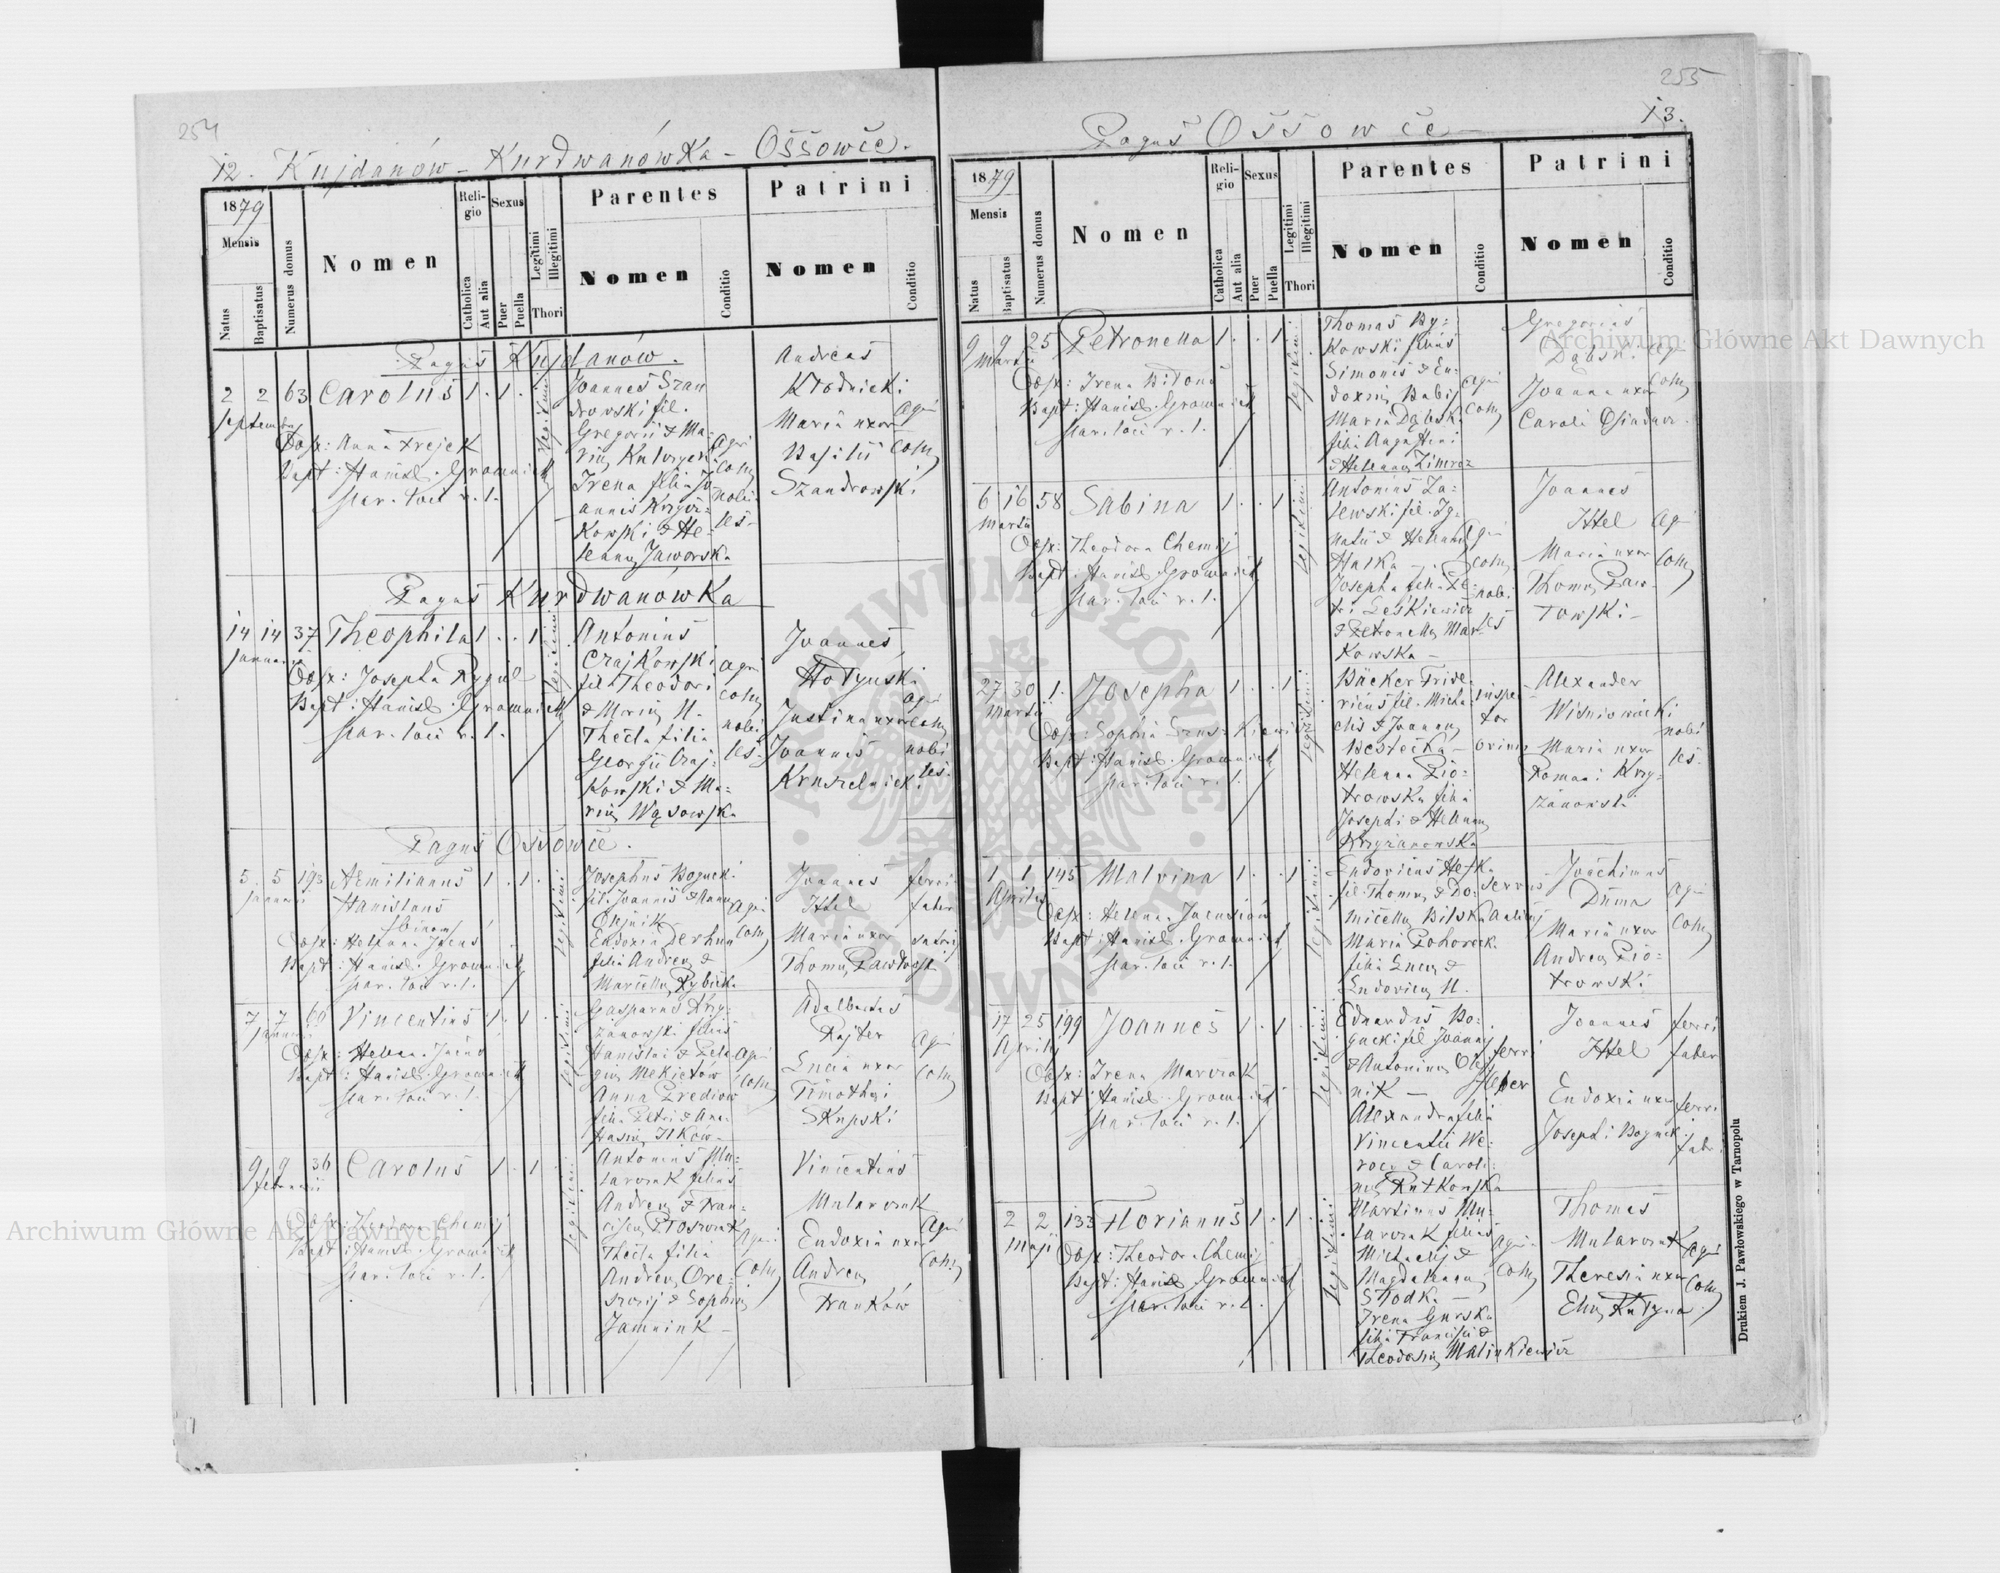 254
12. Kujdanów - Kurdwanówka - Ossowce.
1879
Mensis
Natus
Baptisatus
Numerus domus
Nomen
Religio
Catholica
Aut alia
Sexus
Puer
Puella
Legitimi
Illegitimi
Thori
Parentes
Nomen
Conditio
Patrini
Nomen
Conditio
Pagus Kujdanów.
2 2 63 Carolus 1. 1.
Septembr
Obst: Anna Frejek
Bapt: Stanisl. Gromnick
par. loci r. l.
legitimi
Joannes Szan
drowski fil.
Gregorii & Ma-
riae
Irena filia Jo
annis Krzyż-
kowski & He-
lenae Jaworska
Agri
colae
nobi
les
Andreas
Kłodnicki
Maria uxor
Basilii
Szandrowski
Agri
colae
Pagus Kurdwanówka
14 14 37 Theophila 1. . 1
Januarii
Obst: Josepha Rygiel
Bapt: Stanisl. Gromnick
par. loci r. l.
legitimi
Antonius
Czajkowski
fil. Theodori
& Mariae N.
Thecla filia
Georgii Czaj-
kowski & Ma-
riae Wąsowska
Agri
colae
nobi
les
Joannes
Hołyński
Justina uxor
Joannis
Kruszelnicki
Agri
colae
nobi
les.
Pagus Ossowce.
5 5 193 Aemilianus 1. 1.
Januarii
Stanislaus
/binom/
Obst: Helena
Bapt: Stanisl. Gromnick
par. loci r. l.
legitimi
Josephus Bogucki
fil. Joannis & Annae
Olejnik
Eudoxia Derhun
filia Andreae &
Marcellae Rybicka
Agri
colae
Joannes
Ittel
Maria uxor
Thomae Pawłowski
ferri
faber
7 7 66 Vincentius 1. 1.
Januarii
Obst: Helena
Bapt: Stanisl. Gromnick
par. loci r. l.
legitimi
Gasparus Krzy-
żanowski filius
Stanislai & Pela
giae Mekietów
Anna Prediów
filia Petri & Ana-
stasiae Ilków
Agri
colae
Adalbertus
Rajter
Lucia uxor
Timothei
Skupski
Agri
colae
9 9 36 Carolus 1. 1.
Februarii
Obst: Theodora Chemij
Bapt: Stanisl. Gromnick
par. loci r. l.
legitimi
Antonius Mu-
larczuk filius
Andreae & Fran-
ciscae
Thecla filia
Andreae Ore-
& Sophiae
Agri
colae
Vincentius
Mularczuk
Eudoxia uxor
Andreae
Franków
Agri
colae
255
13.
Pagus Ossowce
1879
Mensis
Natus
Baptisatus
Numerus domus
Nomen
Religio
Catholica
Aut alia
Sexus
Puer
Puella
Legitimi
Illegitimi
Thori
Parentes
Nomen
Conditio
Patrini
Nomen
Conditio
9 9 25 Petronella 1. . 1
Martii
Obst: Irena
Bapt: Stanisl. Gromnick
par. loci r. l.
legitimi
Thomas By-
kowski filius
Simonis & Eu-
doxiae Babij
Maria Dąbska
filia Augustini
& Helenae Zimroz
Agri
colae
Gregorius
Dąbski
Joanna uxor
Caroli
Agri
colae
6 16 58 Sabina 1. . 1
Martii
Obst: Theodora Chemij
Bapt: Stanisl. Gromnick
par. loci r. l.
legitimi
Antonius Za-
lewski fil. Ig-
natii & Helenae
Halka
Josepha filia Pe-
tri Leśkiewicz
& Petronellae Mar-
kowska
Agri
colae
nobi
les
Joannes
Ittel
Maria uxor
Thomae Paw-
łowski
Agri
colae
27 30 1. Josepha 1. . 1
Martii
Obst: Sophia Szuszkiewicz
Bapt: Stanisl. Gromnick
par. loci r. l.
legitimi
Bäcker Fride-
ricus fil. Micha-
elis & Joannae
Bestecka
Helena Pio-
trowska filia
Josephi & Helenae
Krzyżanowska
inspe-
ctor
Alexander
Wiśniowiecki
Maria uxor
Romani Krzy-
żanowski
nobi
les.
1 1 145 Malvina 1. . 1
Aprilis
Obst: Helena
Bapt: Stanisl. Gromnick
par. loci r. l.
legitimi
Ludovicus Hetka
fil. Thomae & Do-
micellae Bilska
Maria Pohorecka
filia Lucae &
Ludovicae N.
servus
aulicus
Joachimus
Duma
Maria uxor
Andreae Pio-
trowski
Agri
colae
17 25 199 Joannes 1. 1.
Aprilis
Obst: Irena Marczak
Bapt: Stanisl. Gromnick
par. loci r. l.
legitimi
Eduardus Bo-
gucki fil. Joannis
& Antoninae Olej
nik
Alexandra filia
Vincentii We-
& Caroli-
nae Rutkowska
ferri
faber
Joannes
Ittel
Eudoxia uxor
Josephi Bogucki
ferri
faber
ferri
fabri
2 2 133 Florianus 1. 1.
Maji
Obst: Theodora Chemij
Bapt: Stanisl. Gromnick
par. loci r. l.
legitimi
Martinus Mu-
larczuk filius
Michaelis &
Magdalenae
Słodka
Irena Gurska
filia Francisci &
Theodosiae Malinkiewicz
Agri
colae
Thomas
Mularczuk
Theresia uxor
Eliae
Agri
colae
Drukiem J. Pawłowskiego w Tarnopolu
Archiwum Główne Akt Dawnych
Archiwum Główne Akt Dawnych
ARCHIWUM GŁÓWNE AKT DAWNYCH